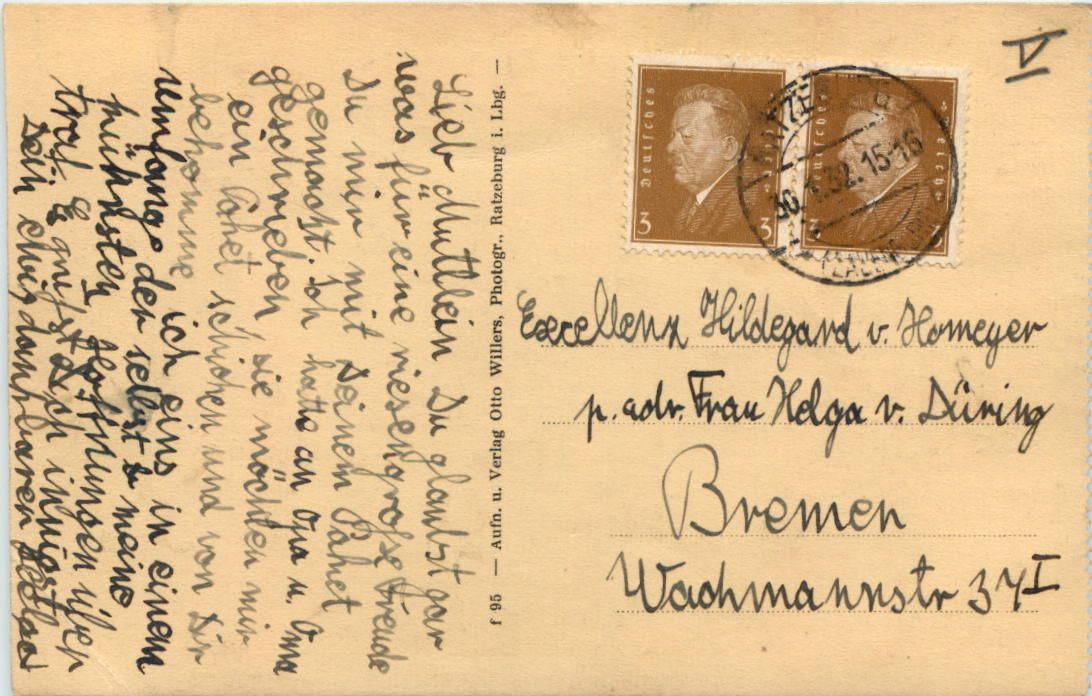 Lieb Muttlein Du glaubst gar
was für eine riesengrosse Freude
Du mir mit Deinem Paket
gemacht. Ich hatte an Opa u. Oma
geschrieben, sie möchten mir
ein Paket schicken und von Dir
bekomme ich eins in einem
Umfange der selbst meine
kühnsten Hoffnungen über
traf. Es grüsst Dich innigst
Dein dankbarer
f 95 — Aufn. u. Verlag Otto Willers, Photogr., Ratzeburg i. Lbg. —
V
Deutsches Reich
3 3
Deutsches Reich
3 3
30.1.32.15-16
Excellenz Hildegard v. Homeyer
p. adr. Frau Helga v. Düring
Bremen
Wachmannstr 37 I